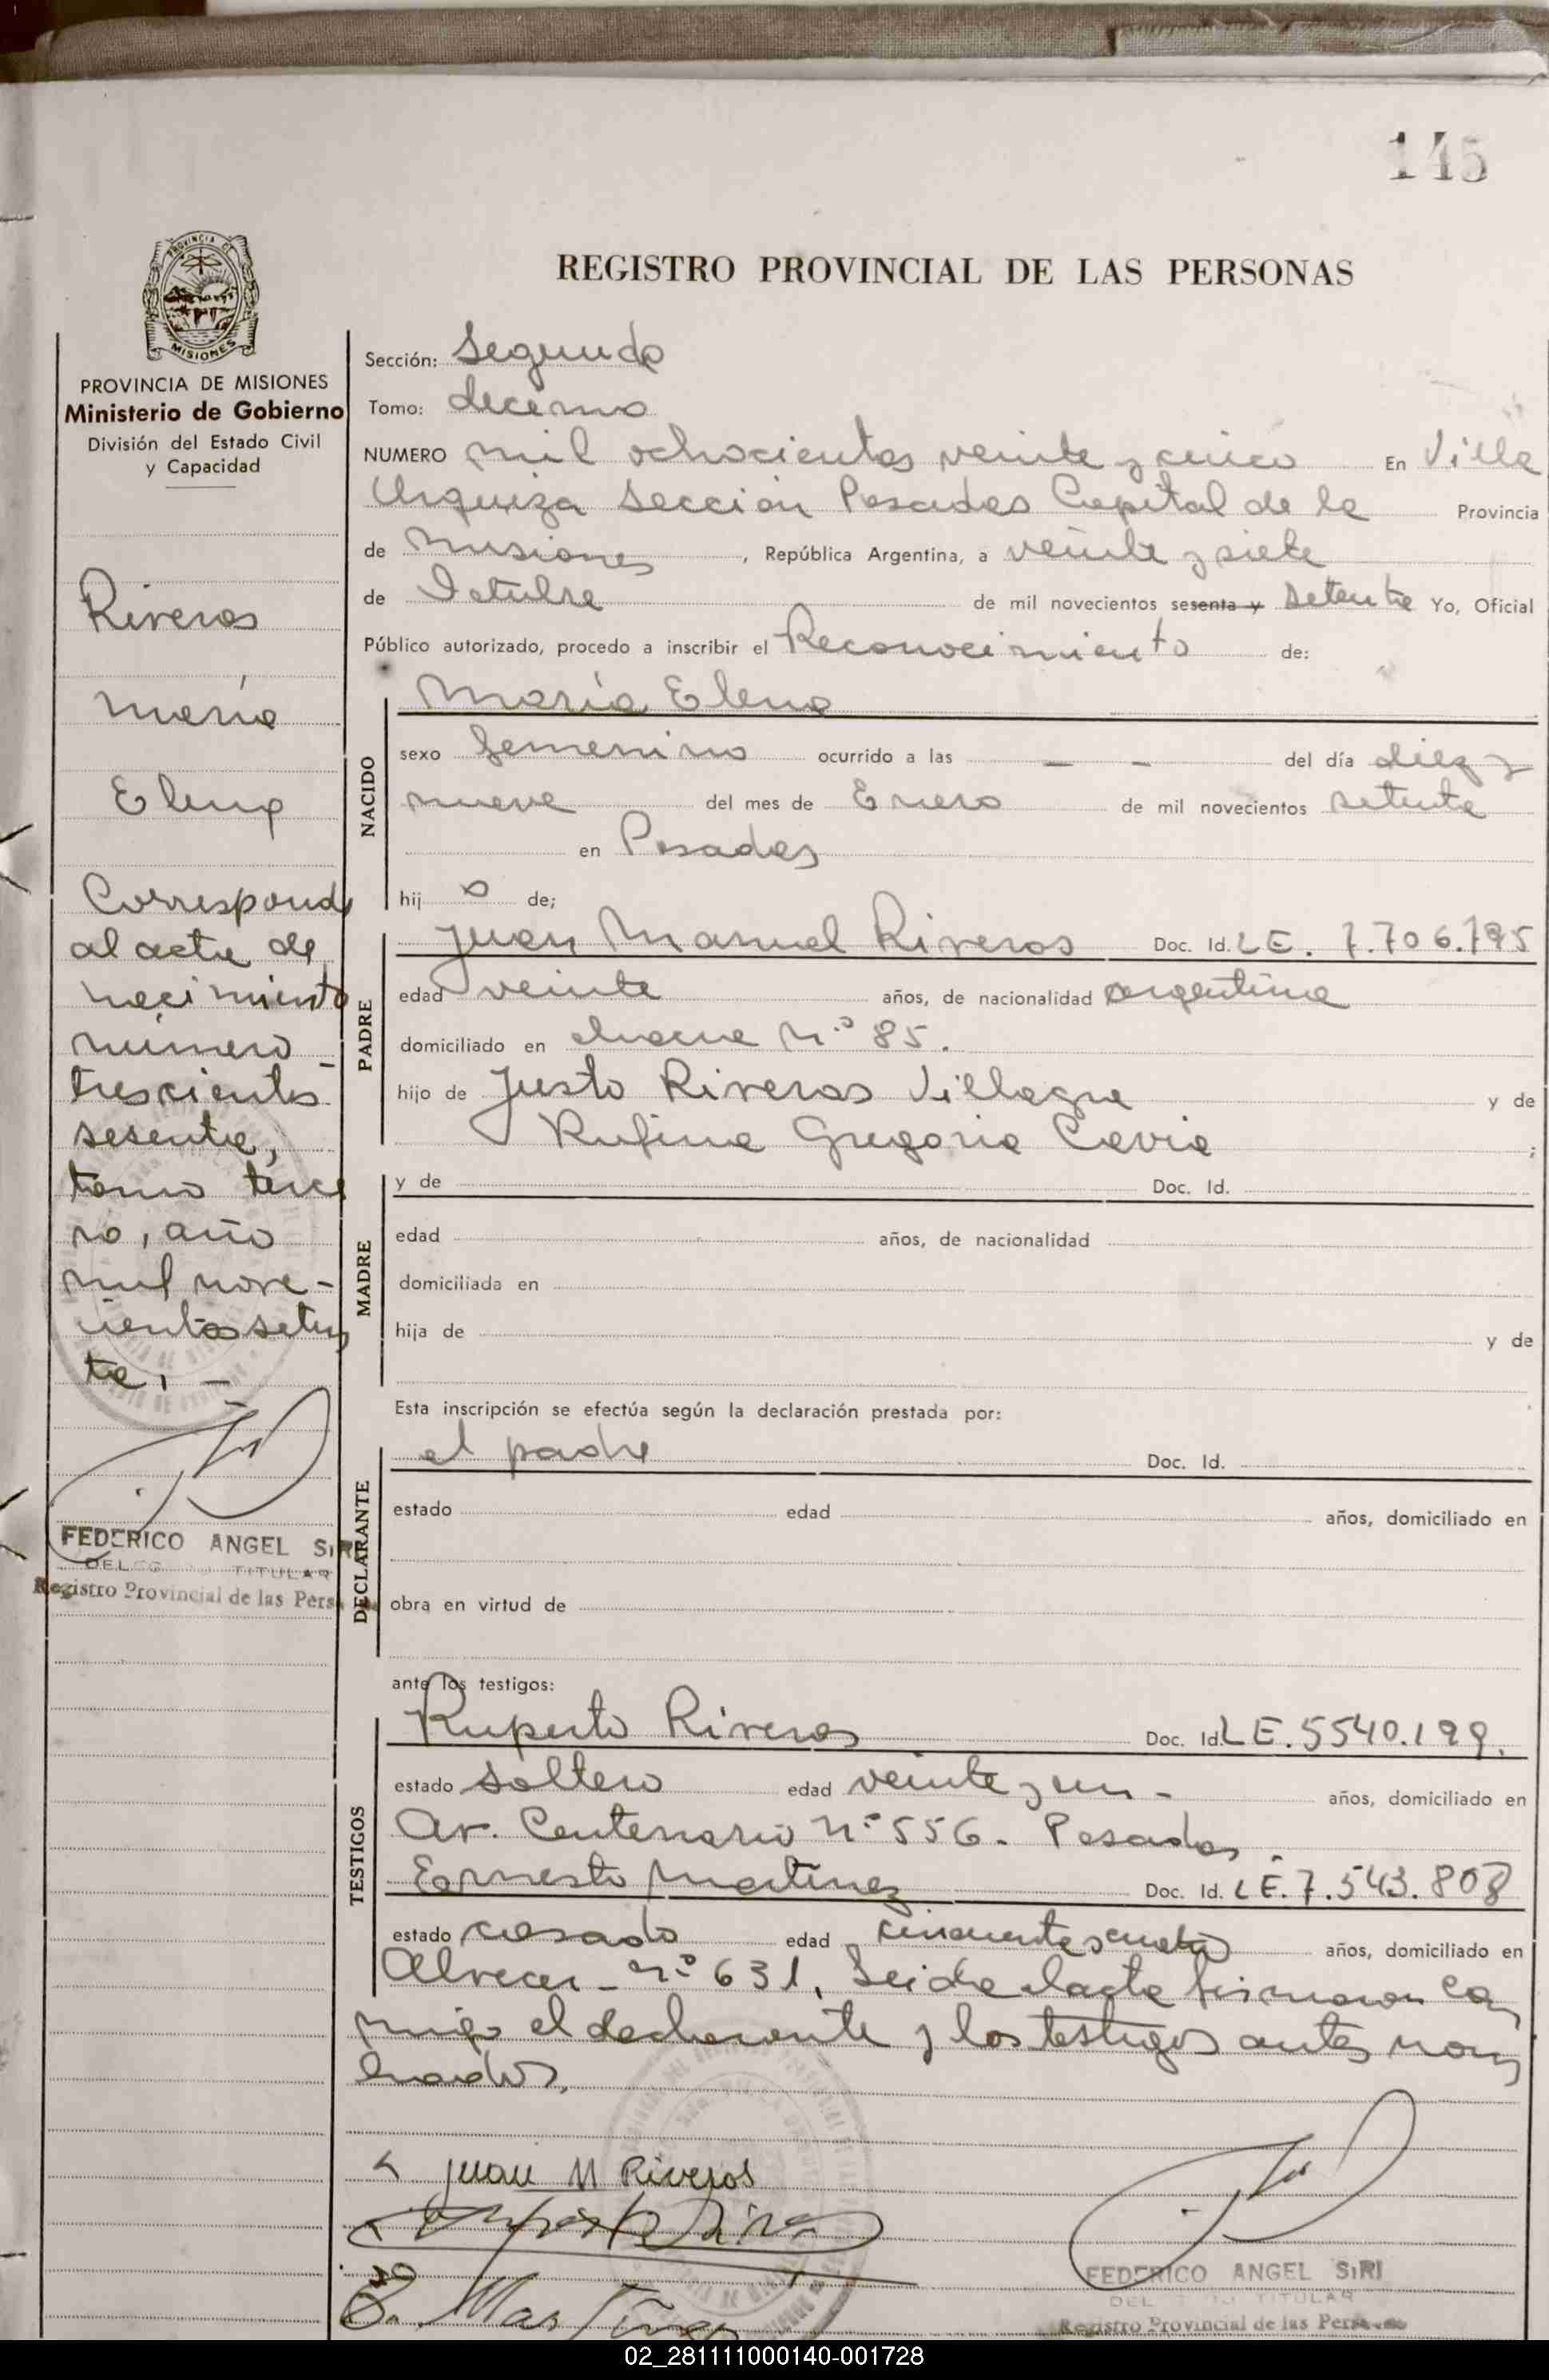 145
REGISTRO PROVINCIAL DE LAS PERSONAS
PROVINCIA DE MISIONES
MISIONES
PROVINCIA DE MISIONES
Ministerio de Gobierno
División del Estado Civil
y Capacidad
Riveros
María
Elena
Corresponde
al acta de
nacimiento
número
trescientos
sesenta,
tomo terce
ro, año
mil nove-
cientos seten
ta, -
FEDERICO ANGEL SIRI
TITULAR
Registro Provincial de las Pers
Sección: Segunda
Tomo: decimo
NUMERO mil ochocientos veinte y cinco En Villa
Urquiza Sección Posadas Capital de la Provincia
de Misiones, República Argentina, a veinte y siete
de Octubre de mil novecientos sesenta y setenta Yo, Oficial
Público autorizado, procedo a inscribir el Reconocimiento de:
NACIDO
María Elena
sexo femenino ocurrido a las — — del día diez y
nueve del mes de Enero de mil novecientos setenta
en Posadas
hij a de;
PADRE
Juan Manuel Riveros Doc. Id. LE. 7.706.795
edad veinte años, de nacionalidad argentina
domiciliado en chacra N.º 85.
hijo de Justo Riveros Villagra y de
Rufina Gregoria ;
MADRE
y de Doc. Id.
edad años, de nacionalidad
domiciliada en
hija de y de
Esta inscripción se efectúa según la declaración prestada por:
DECLARANTE
el padre Doc. Id.
estado edad años, domiciliado en
obra en virtud de
ante los testigos:
TESTIGOS
Ruperto Riveros Doc. Id. LE. 5540.199.
estado soltero edad veinte y un - años, domiciliado en
Av. Centenario nº 556. Posadas.
Ernesto Martinez Doc. Id. LE. 7.543.808
estado casado edad cincuenta y cuatro años, domiciliado en
nº 631. Leida el acta firmaron con
migo el declarante y los testigos antes nom
brados.
Juan M Riveros
E. Martinez
FEDERICO ANGEL SIRI
TITULAR
Registro Provincial de las Personas
02_281111000140-001728